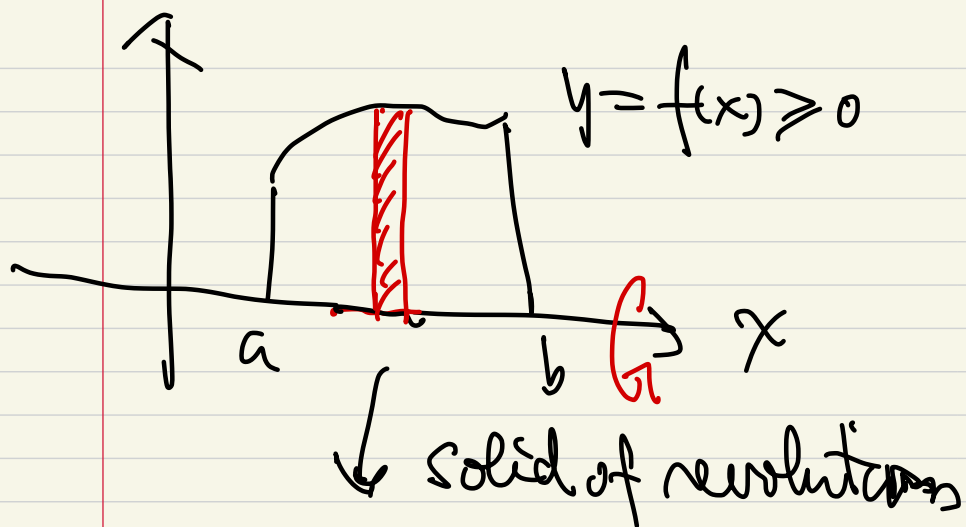 y = f(x) ≥ 0
a
b
x
solid of revolutions